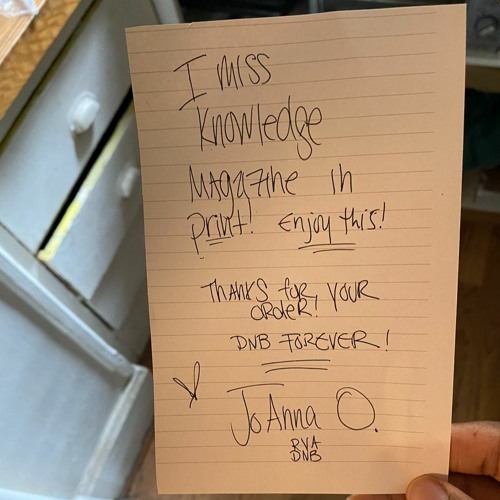 I MISS
Knowledge
MAgazine in
print! Enjoy this!
THANKS for YOUR
ORDER!
DNB FOREVER!
JoAnna O.
RVA
DNB